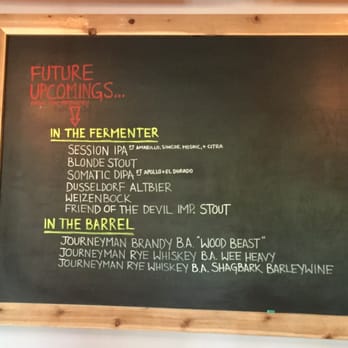 FUTURE
UPCOMINGS...
IN THE FERMENTER
SESSION IPA W/ AMARILLO, SIMCOE, MOSAIC, + CITRA
BLONDE STOUT
SOMATIC DIPA W/ APOLLO + EL DORADO
DUSSELDORF ALTBIER
WEIZENBOCK
FRIEND OF THE DEVIL IMP. STOUT
IN THE BARREL
JOURNEYMAN BRANDY B.A. "WOOD BEAST"
JOURNEYMAN RYE WHISKEY B.A. WEE HEAVY
JOURNEYMAN RYE WHISKEY B.A. SHAGBARK BARLEYWINE